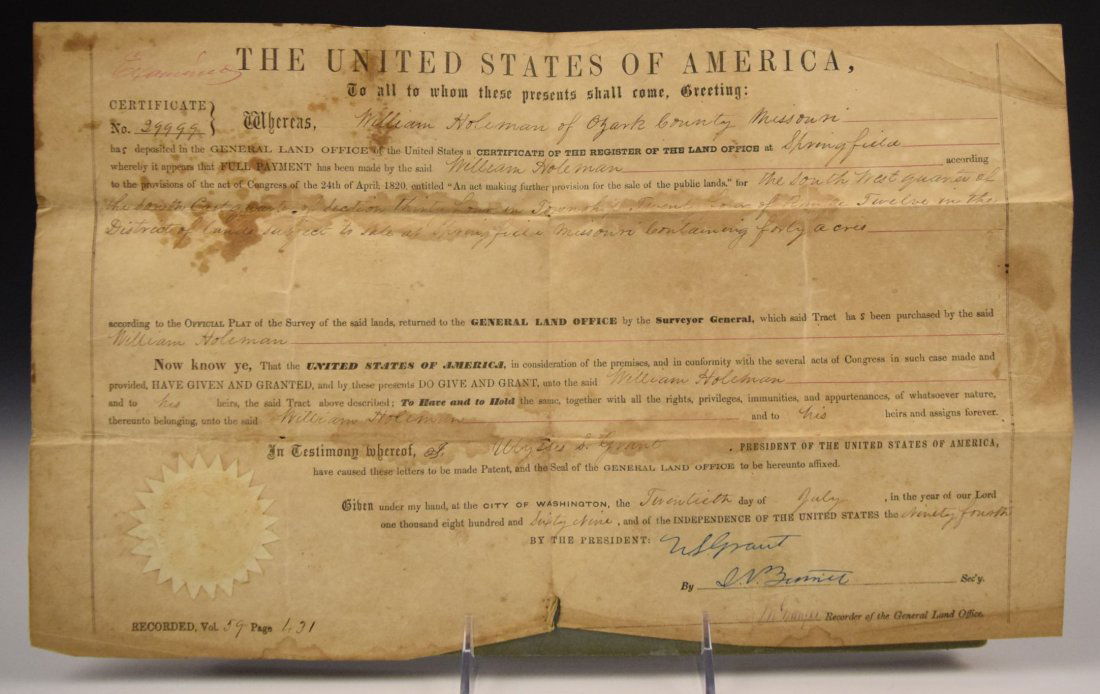 Examined
THE UNITED STATES OF AMERICA,
To all to whom these presents shall come, Greeting:
CERTIFICATE
No. 39999 } Whereas, William Holeman of Ozark County Missouri
has deposited in the GENERAL LAND OFFICE of the United States a CERTIFICATE OF THE REGISTER OF THE LAND OFFICE at Springfield
whereby it appears that FULL PAYMENT has been made by the said William Holeman according
to the provisions of the act of Congress of the 24th of April, 1820, entitled "An act making further provision for the sale of the public lands," for the South West quarter of
the South East quarter of Section thirty four in Township Twenty of Range Twelve in the
District of Lands subject to sale at Springfield Missouri Containing forty acres
according to the OFFICIAL PLAT of the Survey of the said lands, returned to the GENERAL LAND OFFICE by the Surveyor General, which said Tract has been purchased by the said
William Holeman
Now know ye, That the UNITED STATES OF AMERICA, in consideration of the premises, and in conformity with the several acts of Congress in such case made and
provided, HAVE GIVEN AND GRANTED, and by these presents DO GIVE AND GRANT, unto the said William Holeman
and to his heirs, the said Tract above described; To Have and to Hold the same, together with all the rights, privileges, immunities, and appurtenances, of whatsoever nature,
thereunto belonging, unto the said William Holeman and to his heirs and assigns forever.
In Testimony whereof, I, Ulysses S. Grant, PRESIDENT OF THE UNITED STATES OF AMERICA,
have caused these letters to be made Patent, and the Seal of the GENERAL LAND OFFICE to be hereunto affixed.
Given under my hand, at the CITY OF WASHINGTON, the Twentieth day of July, in the year of our Lord
one thousand eight hundred and Sixty Nine, and of the INDEPENDENCE OF THE UNITED STATES the Ninety fourth
BY THE PRESIDENT: U S Grant
By Sec'y.
Recorder of the General Land Office.
RECORDED, Vol. 59 Page 431